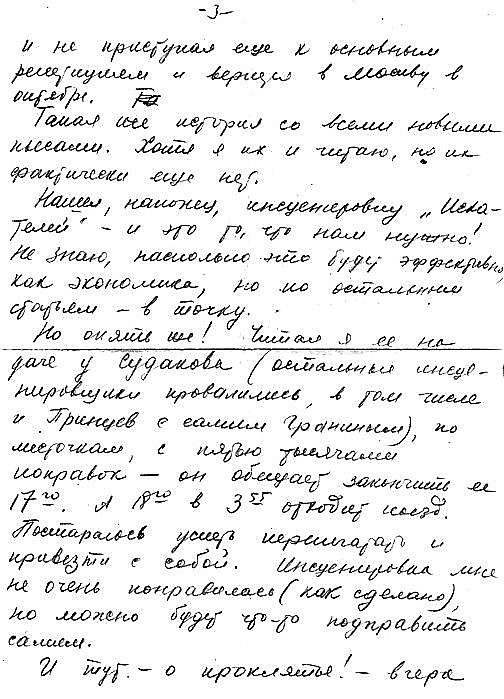 -3-
и не приступая еще к основным
репетициям и вернулся в Москву в
октябре.
Такая же история со всеми новыми
пьесами. Хотя я их и читаю, но их
фактически еще нет.
Нашел, наконец, инсценировку „Иска-
телей" - и это то, что нам нужно!
Не знаю, насколько это будет эффективно,
как экономика, но по остальным
статьям - в точку.
Но опять же! Читал я ее на
даче у Судакова (остальные инсце-
нировщики провалились, в том числе
и Принцев с самим Граниным), по
листочкам, с пятью тысячами
поправок - он обещает закончить ее
17го. А 18го в 3 55 отходит поезд.
Постараюсь успеть перепечатать и
привезти с собой. Инсценировка мне
не очень понравилась (как сделано),
но можно будет что-то подправить
самим.
И тут - о проклятье! - вчера